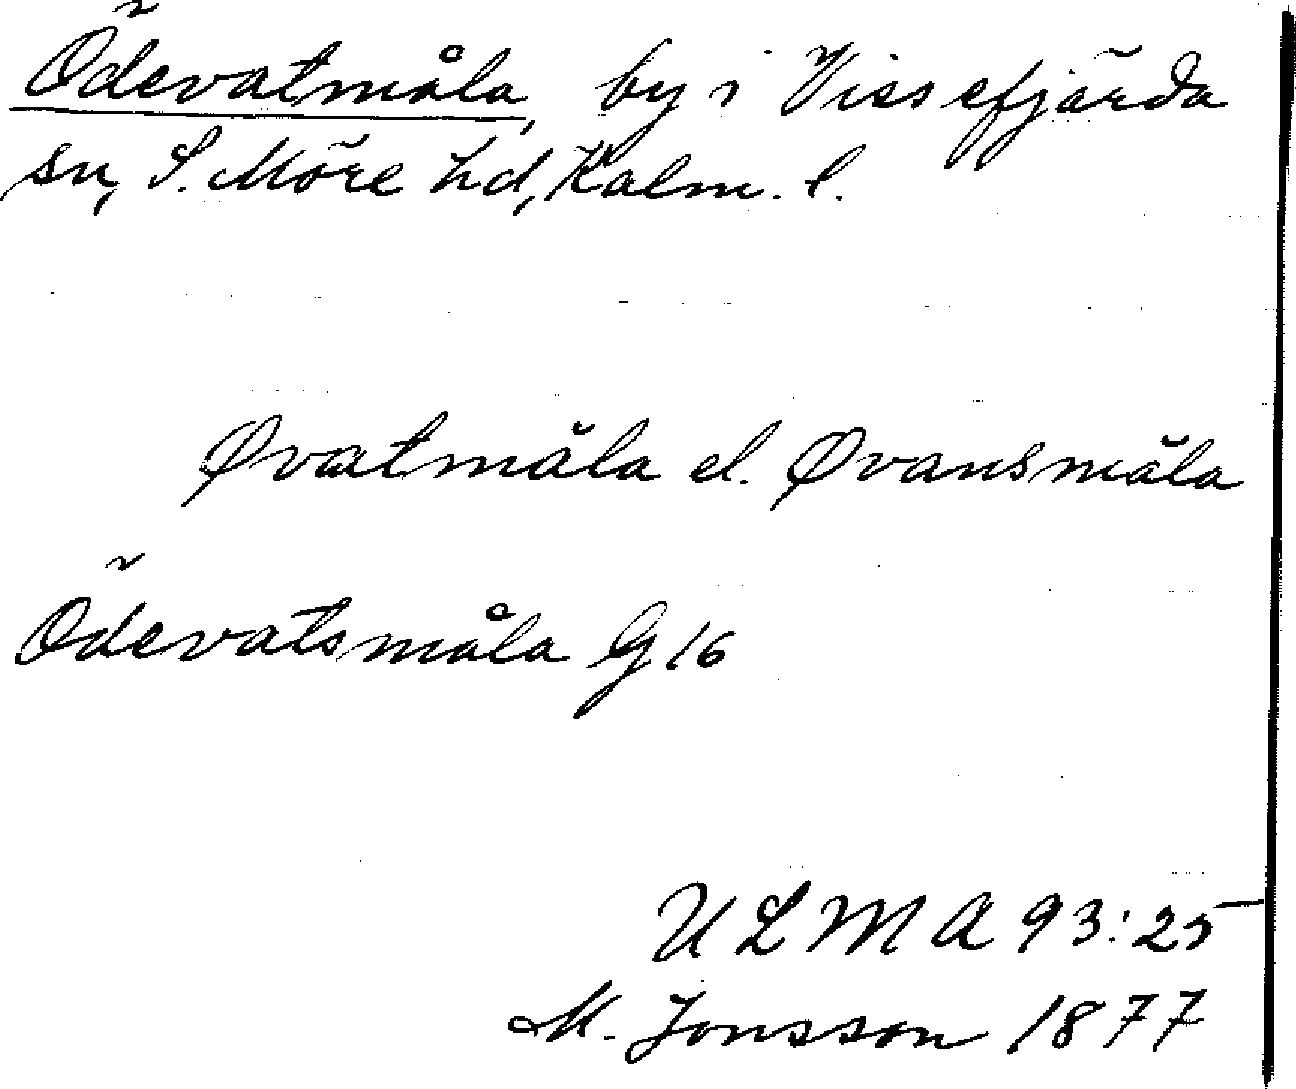 Ödevatmåla, by i Vissefjärda
sn, S. Möre hd, Kalm. l.
Øvatmåla el. Øvansmåla
Ödevatsmåla G 16
ULMA 93:25
M. Jonsson 1877